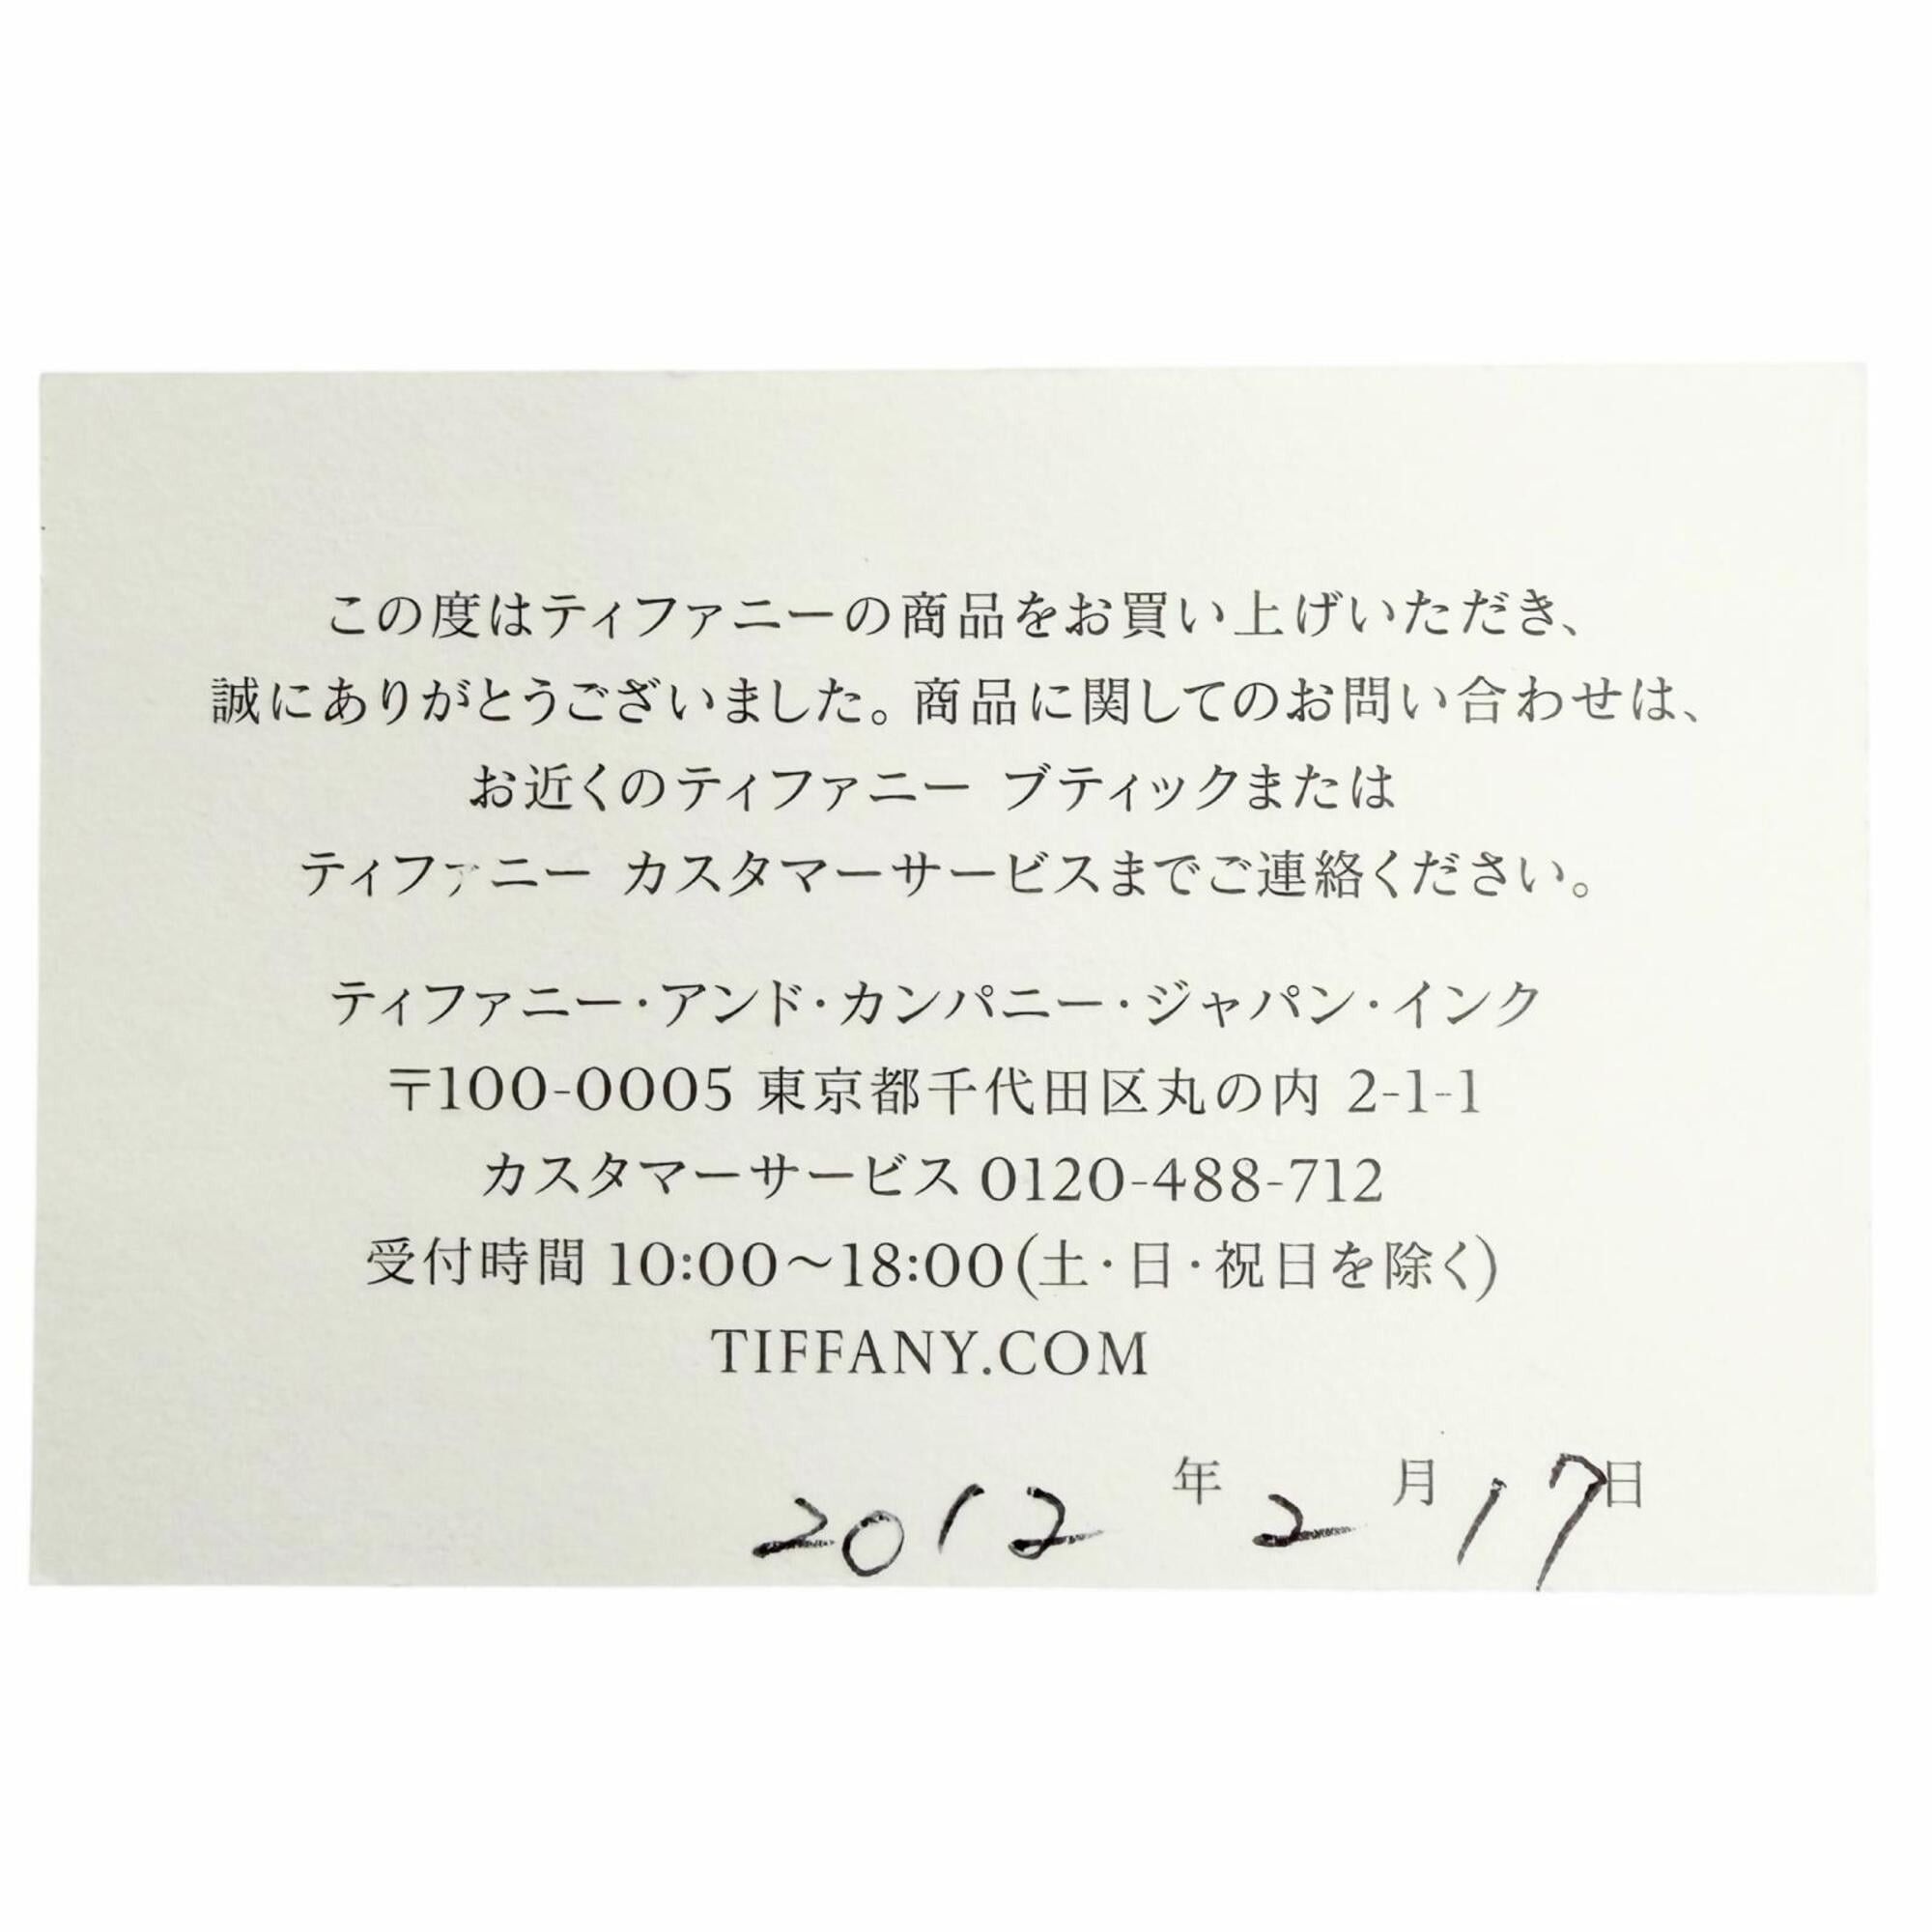 この度はティファニーの商品をお買い上げいただき、
誠にありがとうございました。商品に関してのお問い合わせは、
お近くのティファニー ブティックまたは
ティファニー カスタマーサービスまでご連絡ください。
ティファニー・アンド・カンパニー・ジャパン・インク
〒100-0005 東京都千代田区丸の内 2-1-1
カスタマーサービス 0120-488-712
受付時間 10:00～18:00(土・日・祝日を除く)
TIFFANY.COM
2012年2月17日